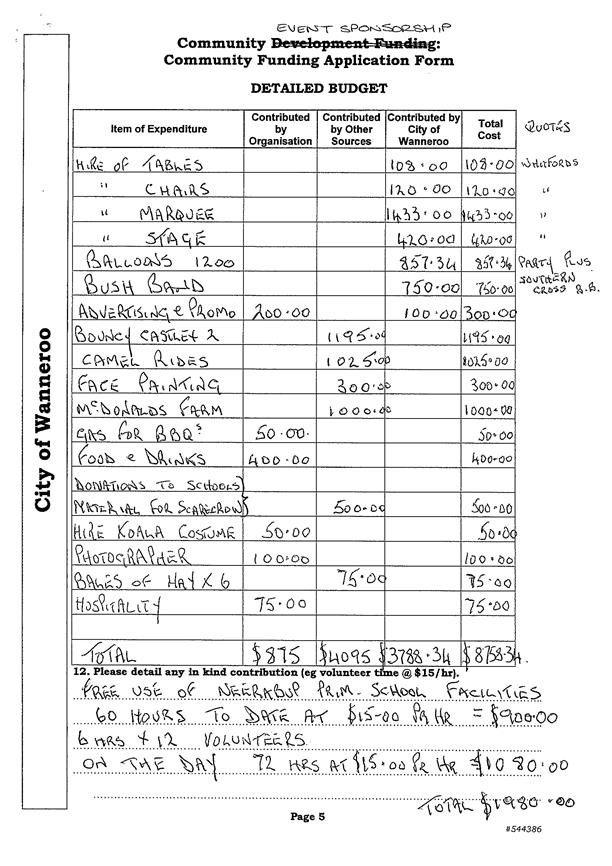 EVENT SPONSORSHIP
Community Development Funding:
Community Funding Application Form
DETAILED BUDGET
City of Wanneroo
Item of Expenditure Contributed by Organisation Contributed by Other Sources Contributed by City of Wanneroo Total Cost QUOTES
HIRE OF TABLES 108.00 108.00 WHITFORDS
" CHAIRS 120.00 120.00 "
" MARQUEE 1433.00 1433.00 "
" STAGE 420.00 420.00 "
BALLOONS 1200 857.34 857.34 PARTY PLUS
BUSH BAND 750.00 750.00 SOUTHERN CROSS B.B.
ADVERTISING & PROMO 200.00 100.00 300.00
BOUNCY CASTLE X 2 1195.00 1195.00
CAMEL RIDES 1025.00 1025.00
FACE PAINTING 300.00 300.00
McDONALDS FARM 1000.00 1000.00
GAS FOR BBQs 50.00. 50.00
FOOD & DRINKS 400.00 400.00
DONATIONS TO SCHOOLS}
MATERIAL FOR SCARECROWS} 500.00 500.00
HIRE KOALA COSTUME 50.00 50.00
PHOTOGRAPHER 100.00 100.00
BALES OF HAY X 6 75.00 75.00
HOSPITALITY 75.00 75.00
TOTAL $875 $4095 $3788.34 $8758.34.
12. Please detail any in kind contribution (eg volunteer time @ $15/hr).
FREE USE OF NEERABUP PRIM. SCHOOL FACILITIES
60 HOURS TO DATE AT $15-00 PR HR = $900.00
6 HRS X 12 VOLUNTEERS
ON THE DAY 72 HRS AT $15.00 PR HR $1080.00
TOTAL $1980.00
Page 5
#544386